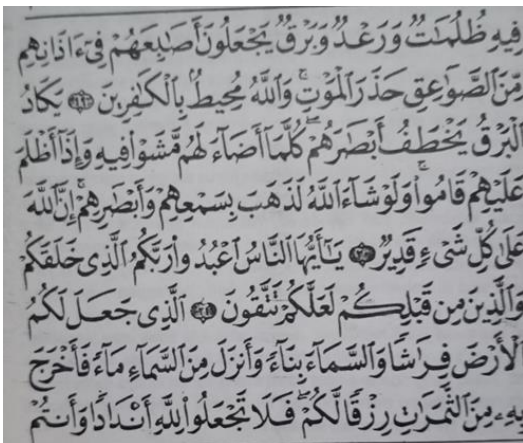 فِيهِ ظُلُمَاتٌ وَرَعْدٌ وَبَرْقٌ يَجْعَلُونَ أَصَابِعَهُمْ فِىٓ ءَاذَانِهِم
مِّنَ ٱلصَّوَاعِقِ حَذَرَ ٱلْمَوْتِ ۚ وَٱللَّهُ مُحِيطٌۢ بِٱلْكَافِرِينَ ١٩ يَكَادُ
ٱلْبَرْقُ يَخْطَفُ أَبْصَارَهُمْ ۖ كُلَّمَآ أَضَآءَ لَهُم مَّشَوْا۟ فِيهِ وَإِذَآ أَظْلَمَ
عَلَيْهِمْ قَامُوا۟ ۚ وَلَوْ شَآءَ ٱللَّهُ لَذَهَبَ بِسَمْعِهِمْ وَأَبْصَارِهِمْ ۚ إِنَّ ٱللَّهَ
عَلَىٰ كُلِّ شَىْءٍ قَدِيرٌ ٢٠ يَآأَيُّهَا ٱلنَّاسُ ٱعْبُدُوا۟ رَبَّكُمُ ٱلَّذِى خَلَقَكُمْ
وَٱلَّذِينَ مِن قَبْلِكُمْ لَعَلَّكُمْ تَتَّقُونَ ٢١ ٱلَّذِى جَعَلَ لَكُمُ
ٱلْأَرْضَ فِرَاشًا وَٱلسَّمَآءَ بِنَآءً وَأَنزَلَ مِنَ ٱلسَّمَآءِ مَآءً فَأَخْرَجَ
بِهِۦ مِنَ ٱلثَّمَرَاتِ رِزْقًا لَّكُمْ ۖ فَلَا تَجْعَلُوا۟ لِلَّهِ أَندَادًا وَأَنتُمْ